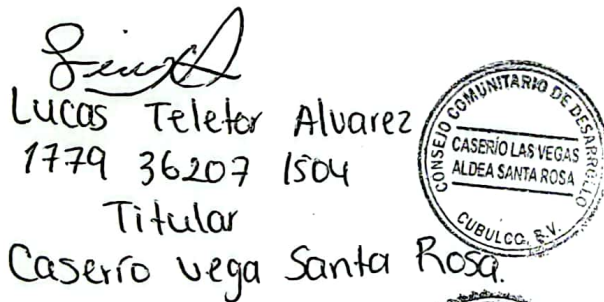 Lucas Teletor Alvarez
1779 36207 1504
Titular
Caserío vega Santa Rosa.
CONSEJO COMUNITARIO DE DESARROLLO
CASERÍO LAS VEGAS
ALDEA SANTA ROSA
CUBULCO, B.V.